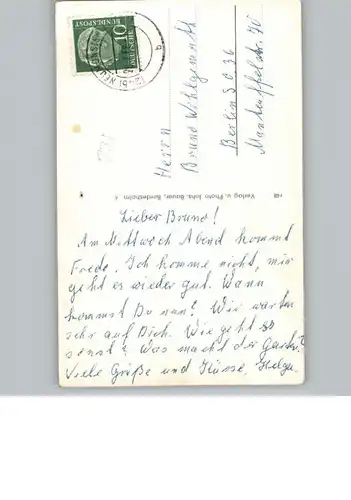 Lieber Bruno!
Am Mittwoch Abend kommt
Frede. Ich komme nicht, mir
geht es wieder gut. Wann
kommst Du nun? Wir warten
sehr auf Dich. Wie geht es
sonst? Was macht der Garten?
Viele Grüße und Küsse, Helga.
Herrn
Bruno Wohlgemuth
Berlin SO 36
Manteuffelstr. 40
Verlag u. Photo Johs. Bauer,
DEUTSCHE
BUNDESPOST
10